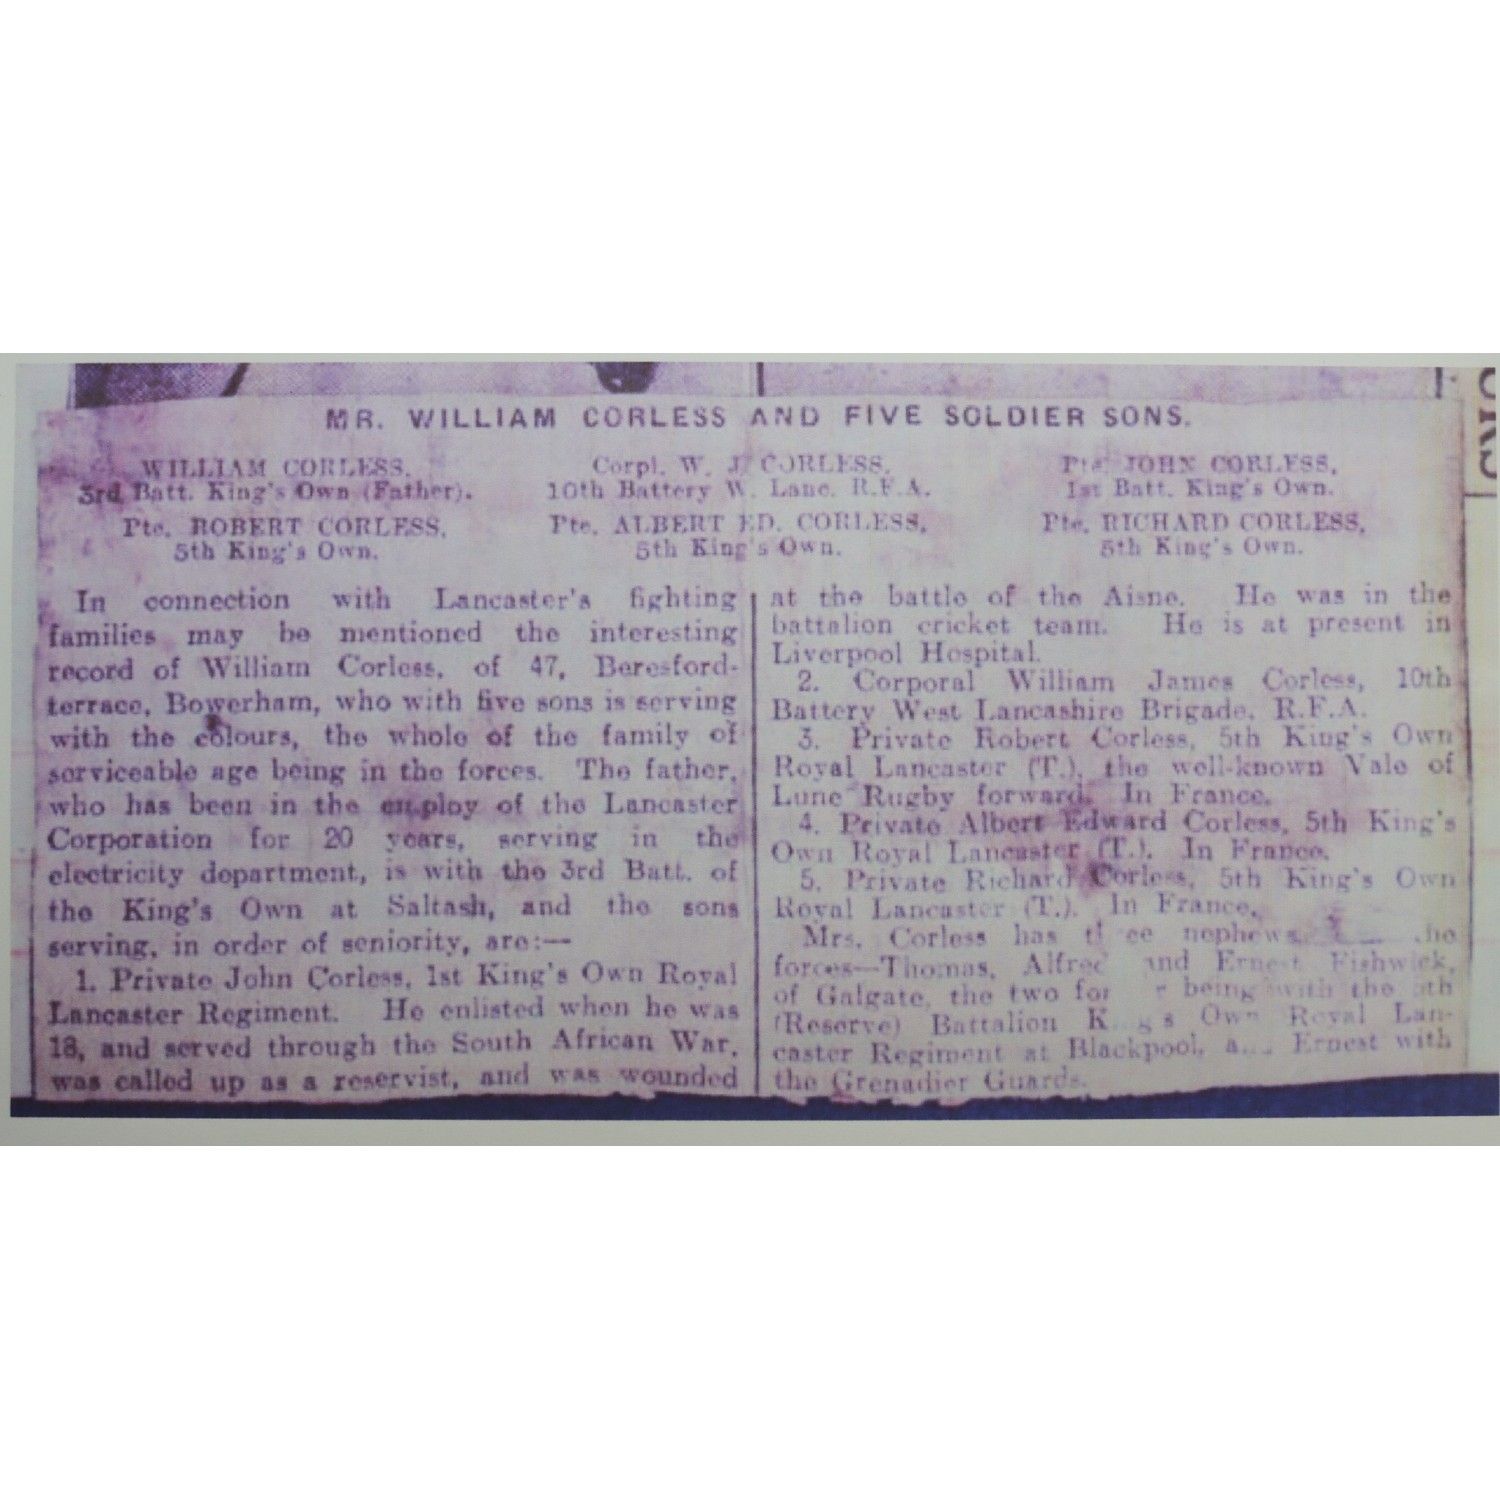 MR. WILLIAM CORLESS AND FIVE SOLDIER SONS.
WILLIAM CORLESS,
3rd Batt. King's Own (Father).
Corpl. W. J. CORLESS,
10th Battery W. Lanc. R.F.A.
Pte. JOHN CORLESS,
1st Batt. King's Own.
Pte. ROBERT CORLESS,
5th King's Own.
Pte. ALBERT ED. CORLESS,
5th King's Own.
Pte. RICHARD CORLESS,
5th King's Own.
In connection with Lancaster's fighting
families may be mentioned the interesting
record of William Corless, of 47, Beresford-
terrace, Bowerham, who with five sons is serving
with the colours, the whole of the family of
serviceable age being in the forces. The father,
who has been in the employ of the Lancaster
Corporation for 20 years, serving in the
electricity department, is with the 3rd Batt. of
the King's Own at Saltash, and the sons
serving, in order of seniority, are:—
1. Private John Corless, 1st King's Own Royal
Lancaster Regiment. He enlisted when he was
18, and served through the South African War,
was called up as a reservist, and was wounded
at the battle of the Aisne. He was in the
battalion cricket team. He is at present in
Liverpool Hospital.
2. Corporal William James Corless, 10th
Battery West Lancashire Brigade, R.F.A.
3. Private Robert Corless, 5th King's Own
Royal Lancaster (T.), the well-known Vale of
Lune Rugby forward. In France.
4. Private Albert Edward Corless, 5th King's
Own Royal Lancaster (T.). In France.
5. Private Richard Corless, 5th King's Own
Royal Lancaster (T.). In France.
Mrs. Corless has nephews
forces—Thomas, Alfred and Ernest Fishwick,
of Galgate, the two being with the
(Reserve) Battalion Own Royal Lan-
caster Regiment at Blackpool, Ernest with
the Grenadier Guards.